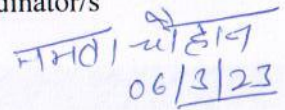 dinator/s
ममता चौहान
06/3/23